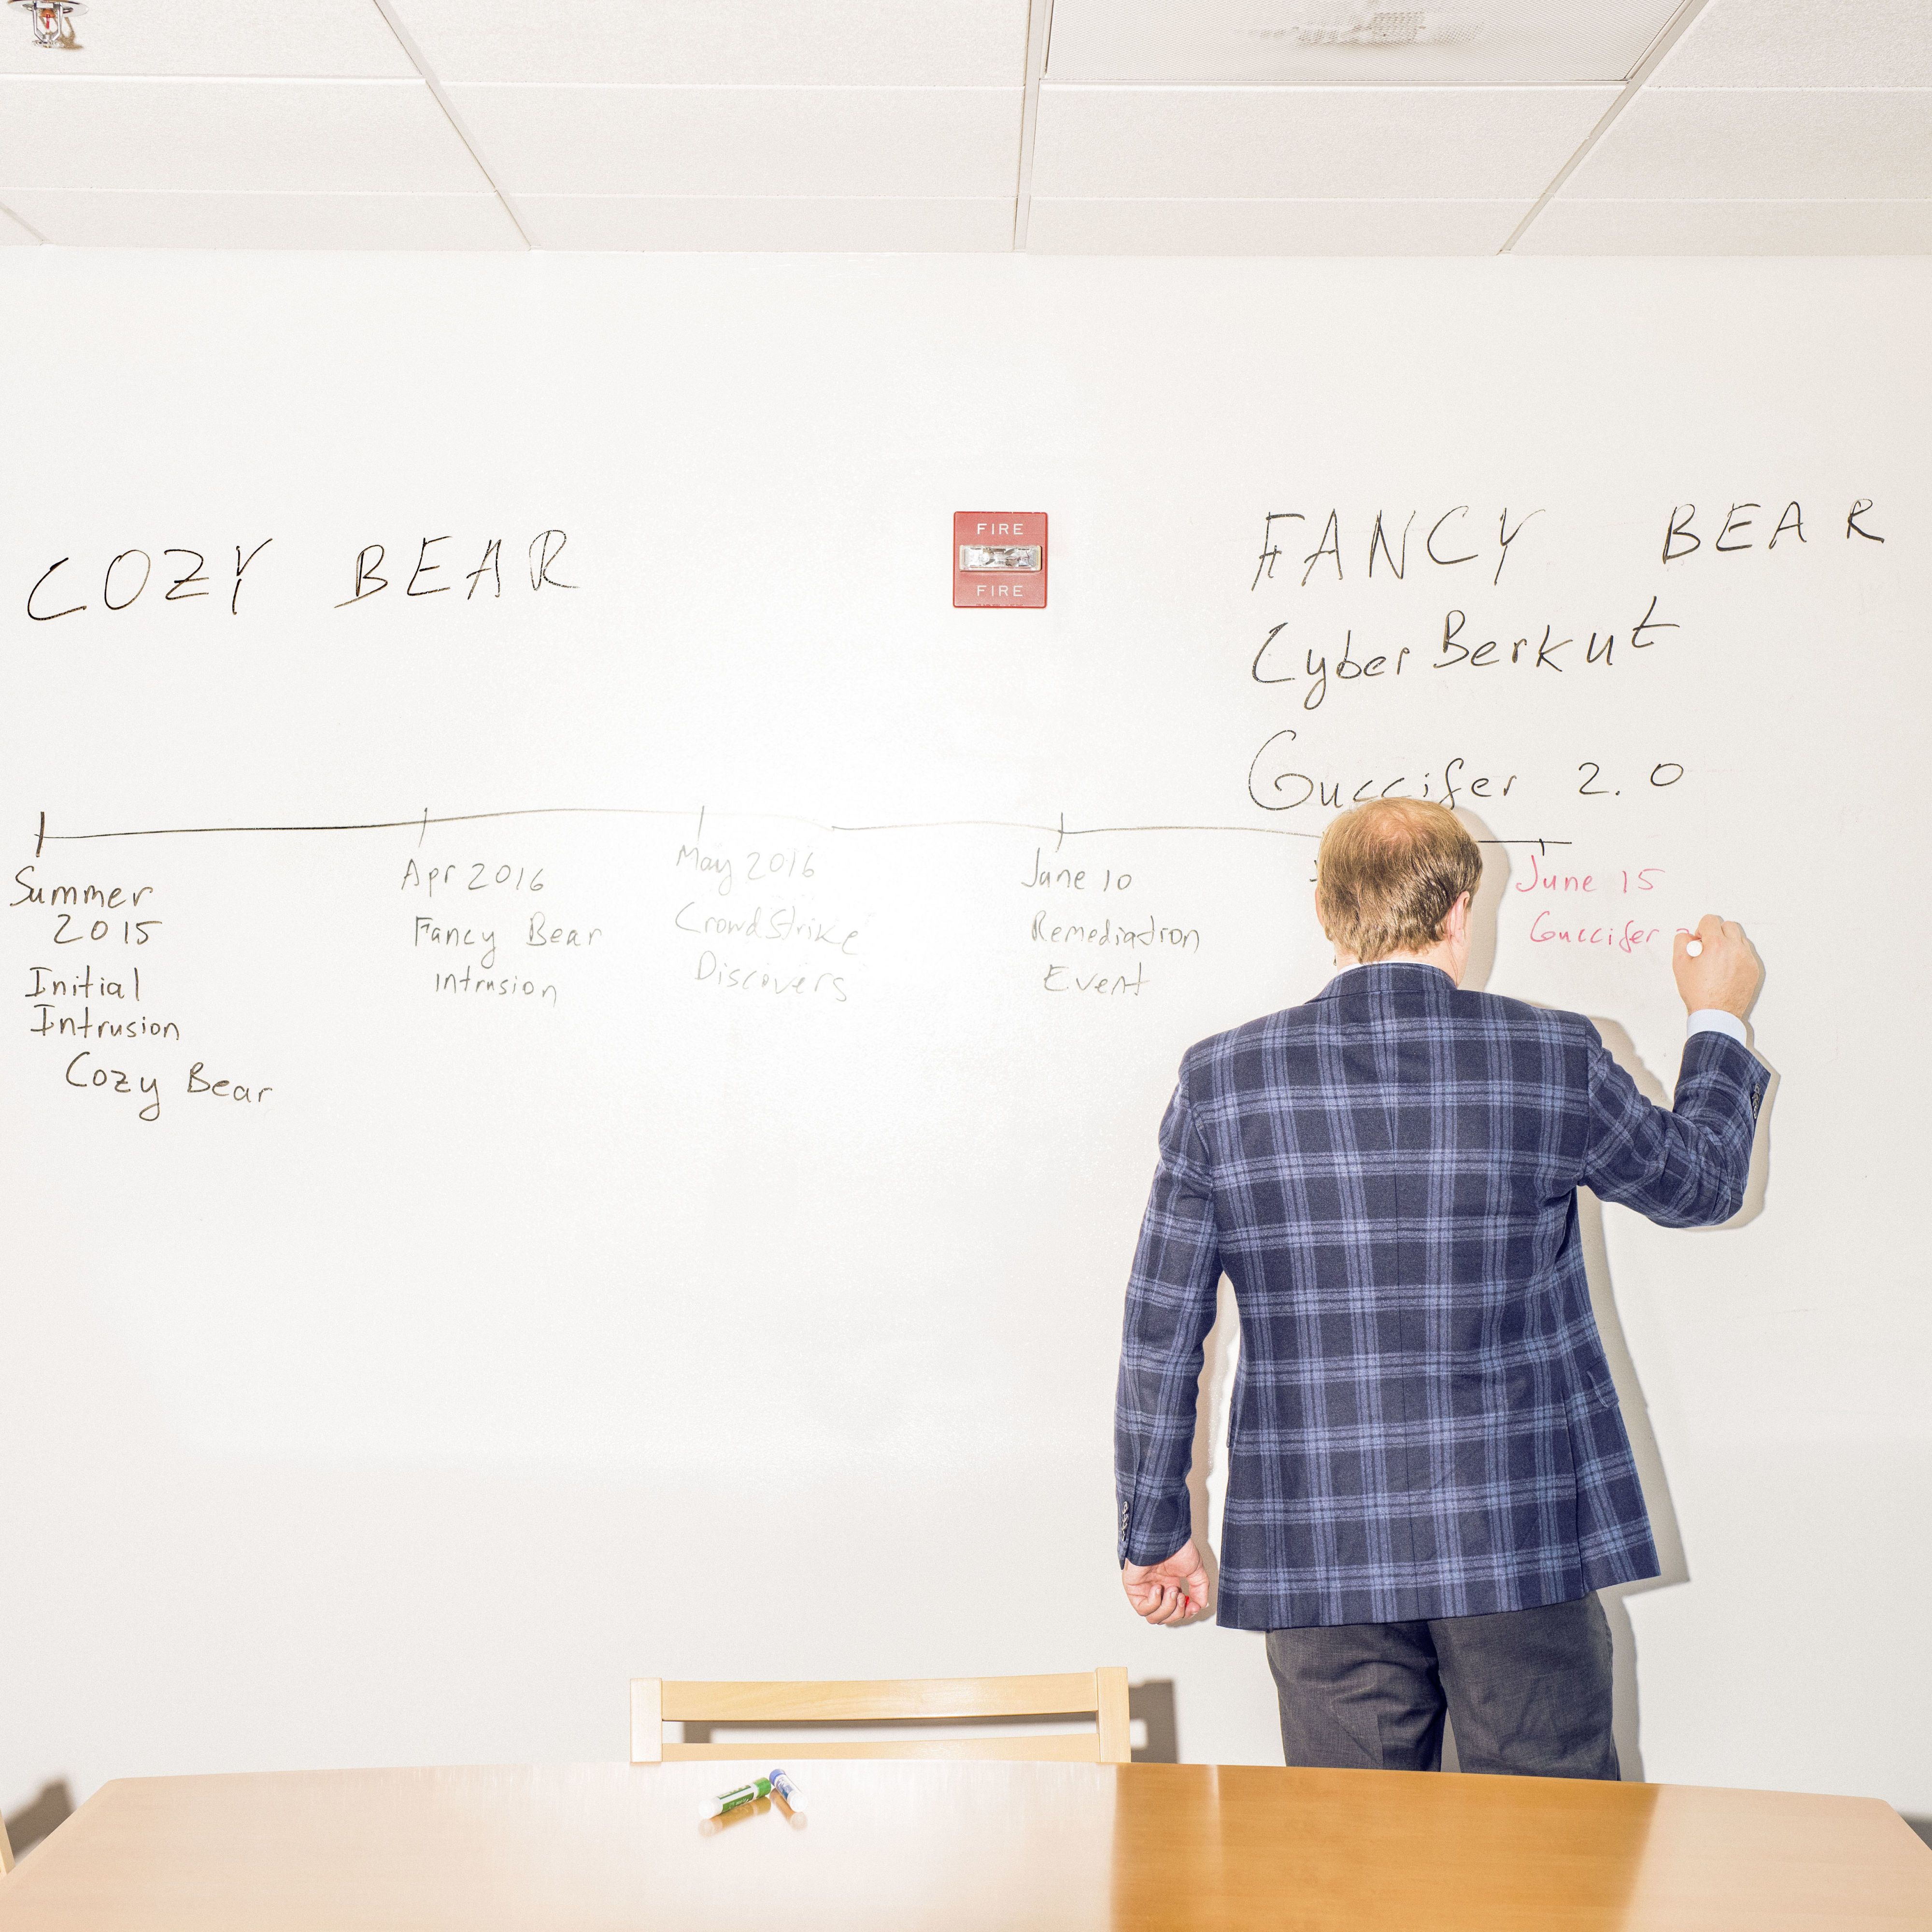 COZY BEAR
FIRE
FIRE
FANCY BEAR
CyberBerkut
Guccifer 2.0
Summer
2015
Initial
Intrusion
Cozy Bear
Apr 2016
Fancy Bear
intrusion
May 2016
CrowdStrike
Discovers
June 10
Remediation
Event
June 15
Guccifer